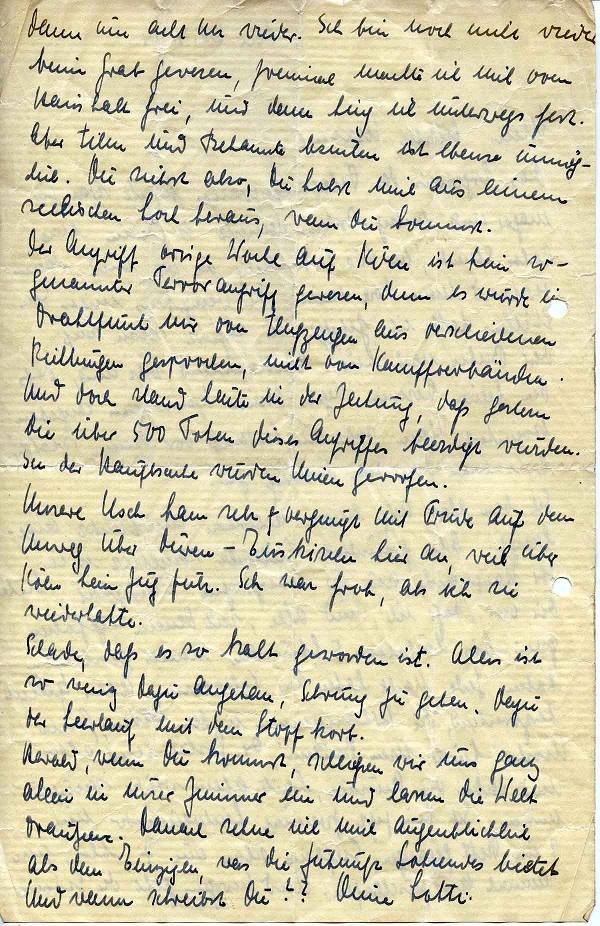 dann um acht Uhr wieder. Ich bin noch nicht wieder
beim Grab gewesen, zweimal machte ich mich vom
Haushalt frei, und dann hing ich unterwegs fest.
Aber und Bekannte ist ebenso unmög-
lich. Du siehst also, Du holst mich aus einem
seelischen Loch heraus, wenn Du kommst.
Der Angriff vorige Woche auf Köln ist kein so-
genannter Terrorangriff gewesen, denn es wurde im
Drahtfunk nur von Flugzeugen aus verschiedenen
Richtungen gesprochen, nicht von Kampfverbänden.
Und doch stand heute in der Zeitung, daß gestern
die über 500 Toten dieses Angriffes beerdigt wurden.
In der Hauptsache wurden Minen geworfen.
Unsere Usch kam sehr vergnügt mit Trude auf dem
Umweg über Düren – Euskirchen hier an, weil über
Köln kein Zug fuhr. Ich war froh, als ich sie
wiederhatte.
Schade, daß es so kalt geworden ist. Alles ist
so wenig dazu angetan, Schwung zu geben. Dazu
der Leerlauf mit dem Stopfkorb.
Harald, wenn Du kommst, schließen wir uns ganz
allein in unser Zimmer ein und lassen die Welt
draußen. Danach sehne ich mich augenblicklich
als dem Einzigen, was die Zukunft Lohnendes bietet
Und wann schreibst Du?? Deine Lotti.